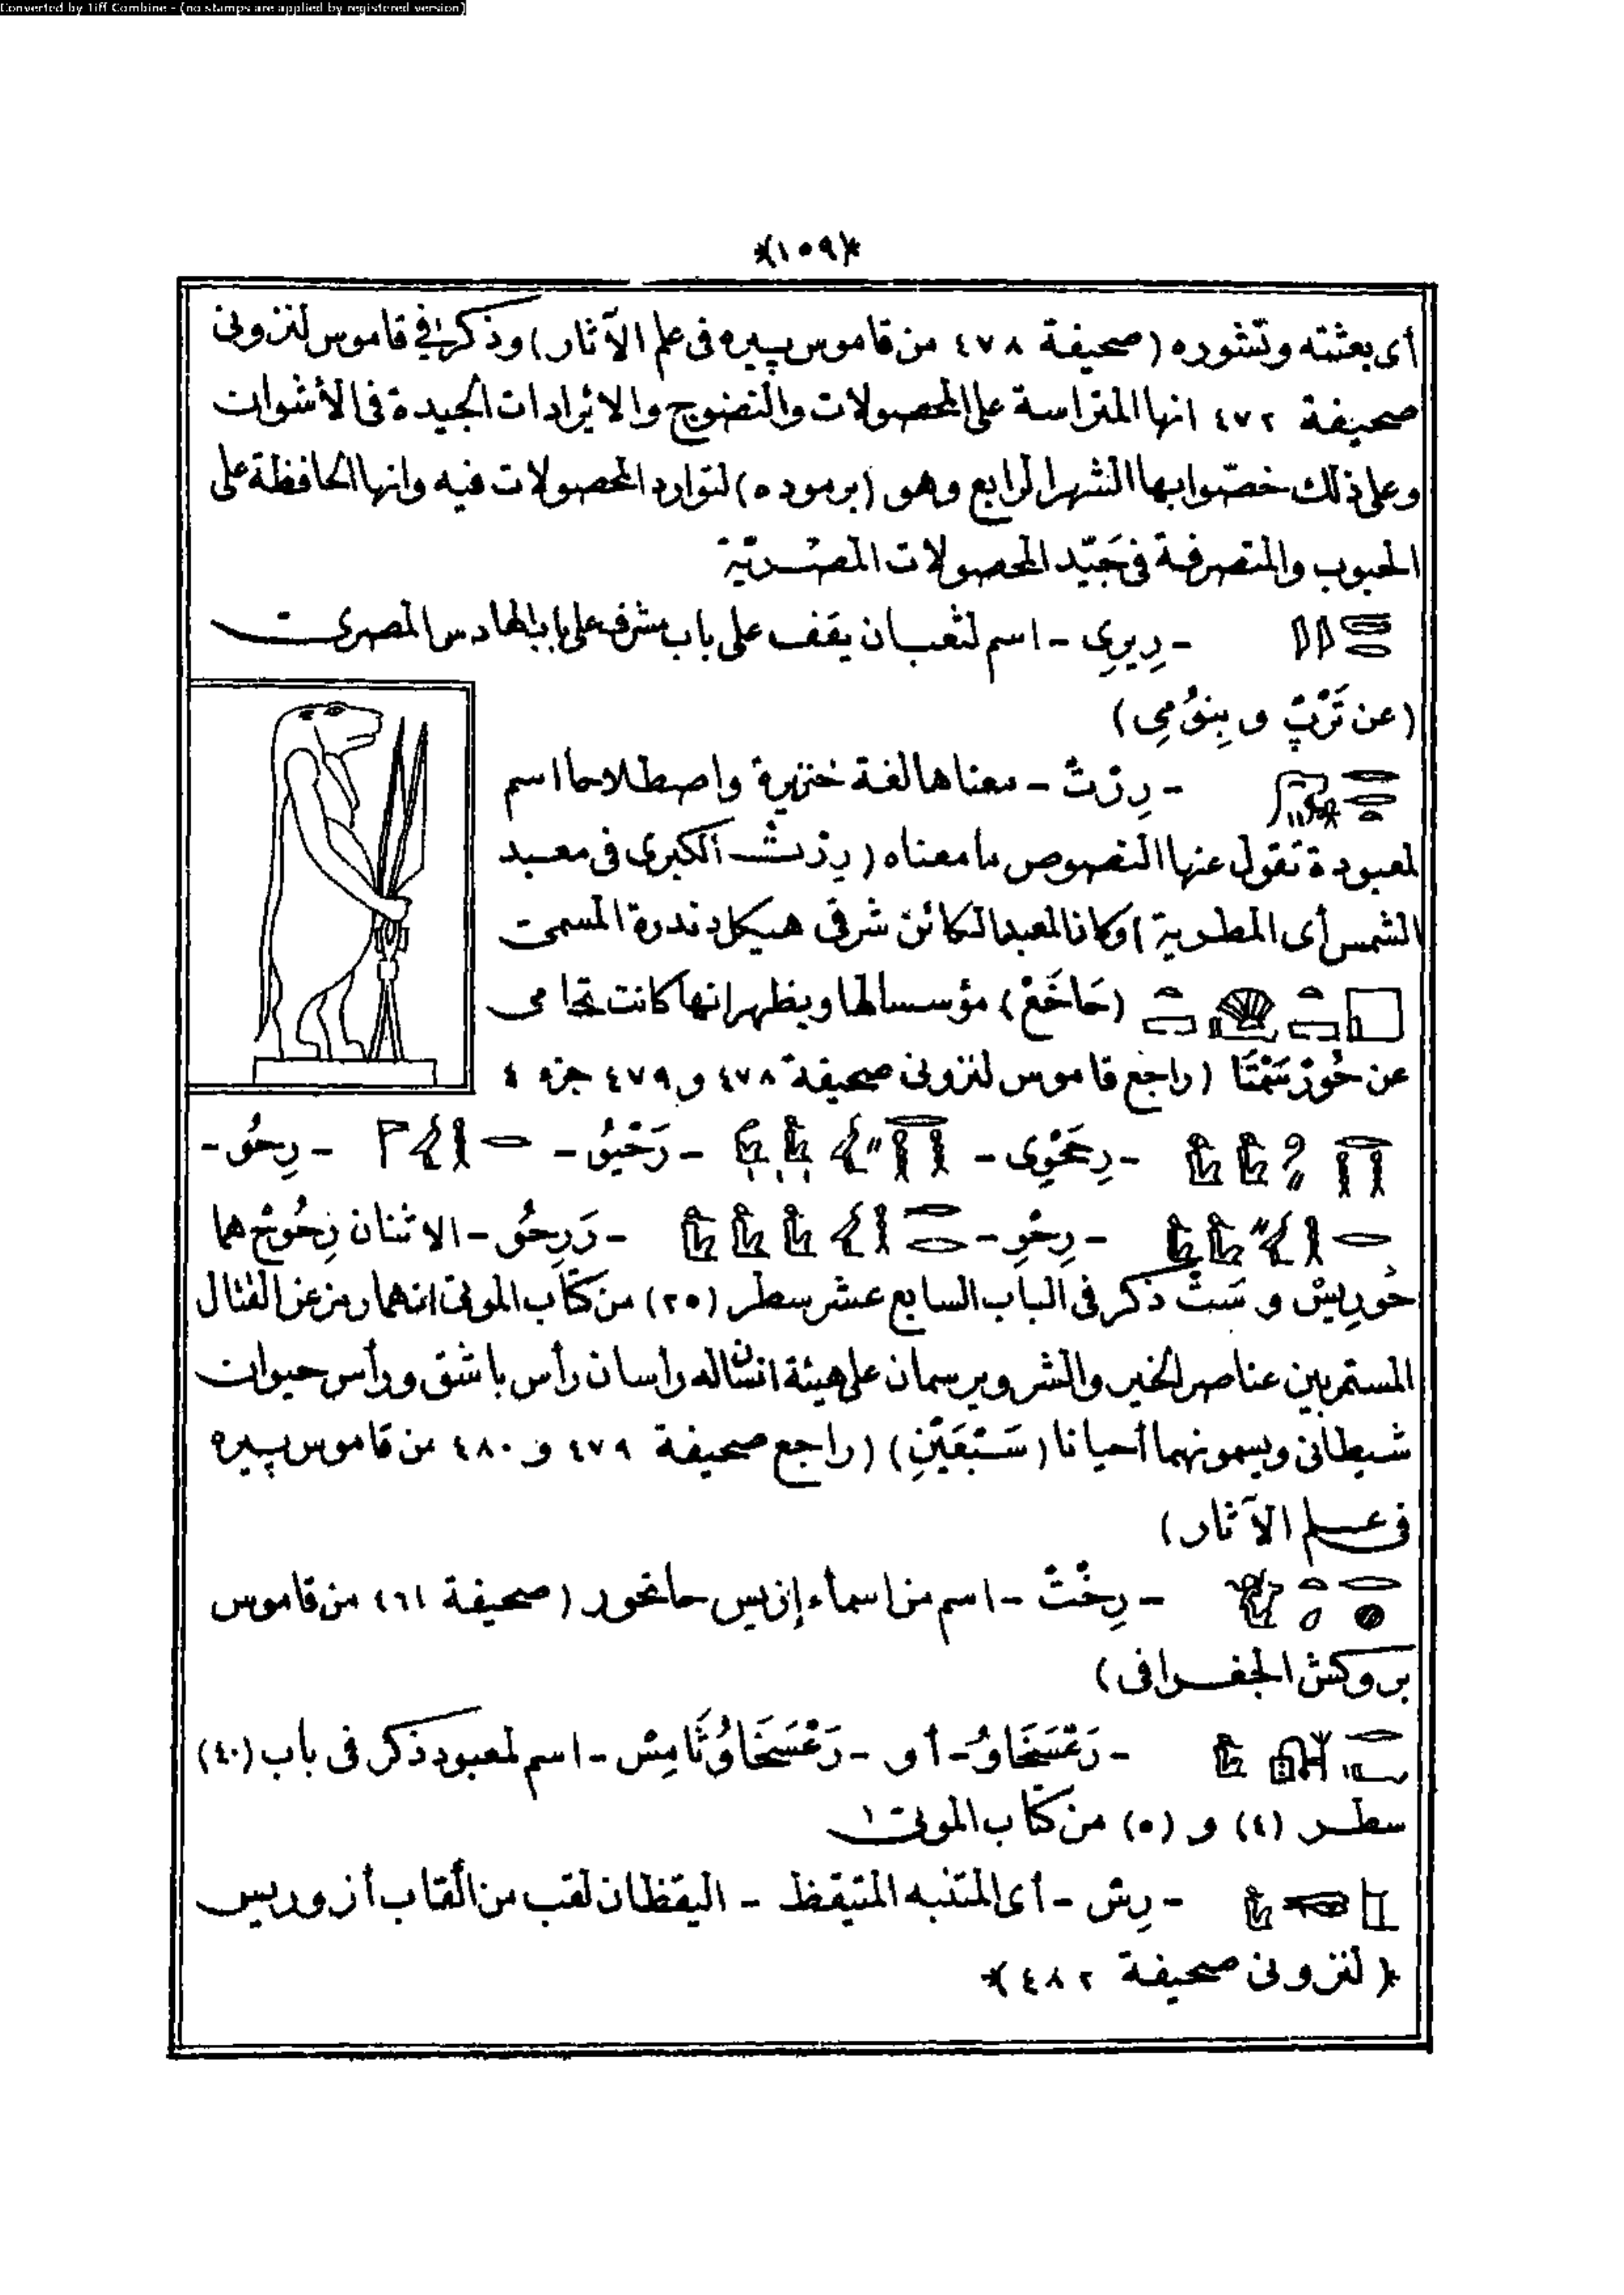 Converted by Tiff Combine - (no stamps are applied by registered version)
*(١٥٩)*
أى بعثته ونشوره (صحيفة ٤٧٨ من قاموس پيره فى علم الآثار) وذكر فى قاموس لنزونى
صحيفة ٤٧٢ انها المتراسة على المحصولات والنضوج والايرادات الجيدة فى الأشوات
وعلى ذلك خصّوا بها الشهر الرابع وهو (برموده) لتوارد المحصولات فيه وانها الحافظة على
الحبوب والمتصرفة فى جَيّد المحصولات المصْريّة
- رِيرِى - اسم لثعبان يقف على باب مشرفه على باب الهادس المصرى
(عن تَرْپْ و بِنوُمِى)
- رِرْتْ - معناها لغة خنزيرة واصطلاحا اسم
لمعبودة تقول عنها النصوص ما معناه (رِرْتْ الكبرى فى معبد
الشمس أى المطرية) وكان المعبد الكائن شرقى هيكل دندرة المسمى
(حَاخَعْ) مؤسسا لها ويظهر انها كانت تحامى
عن حُورْسَمْتَا (راجع قاموس لنزونى صحيفة ٤٧٨ و ٤٧٩ جزء ٤
- رِحَوِى - - رَحْيوُ - - رِحُو -
- رِحْوِ - - رَرِحُو - الاثنان رِحُوحْ هما
حُورِيسْ و سَتْ ذكر فى الباب السابع عشر سطر (٢٥) من كتاب الموتى انهما رمز عن القتال
المستمر بين عناصر الخير والشر ويرسمان على هيئة انسان له راسان رأس باشق ورأس حيوان
شيطانى ويسمونهما أحيانا (سَبْعَيْنِ) (راجع صحيفة ٤٧٩ و ٤٨٠ من قاموس پيره
فى علم الآثار)
- رِخْتْ - اسم من اسماء إزيس حاتحور (صحيفة ٤٦١ من قاموس
بروكش الجغرافى)
- رَعْسَخَاوُ - أو - رَعْسَخَاوُتَامِسْ - اسم لمعبود ذكر فى باب (٤٠)
سطر (٤) و (٥) من كتاب الموتى
- رِسْ - أى المتنبه المتيقظ - اليقظان لقب من ألقاب أزوريس
*(لنزونى صحيفة ٤٨٢)*